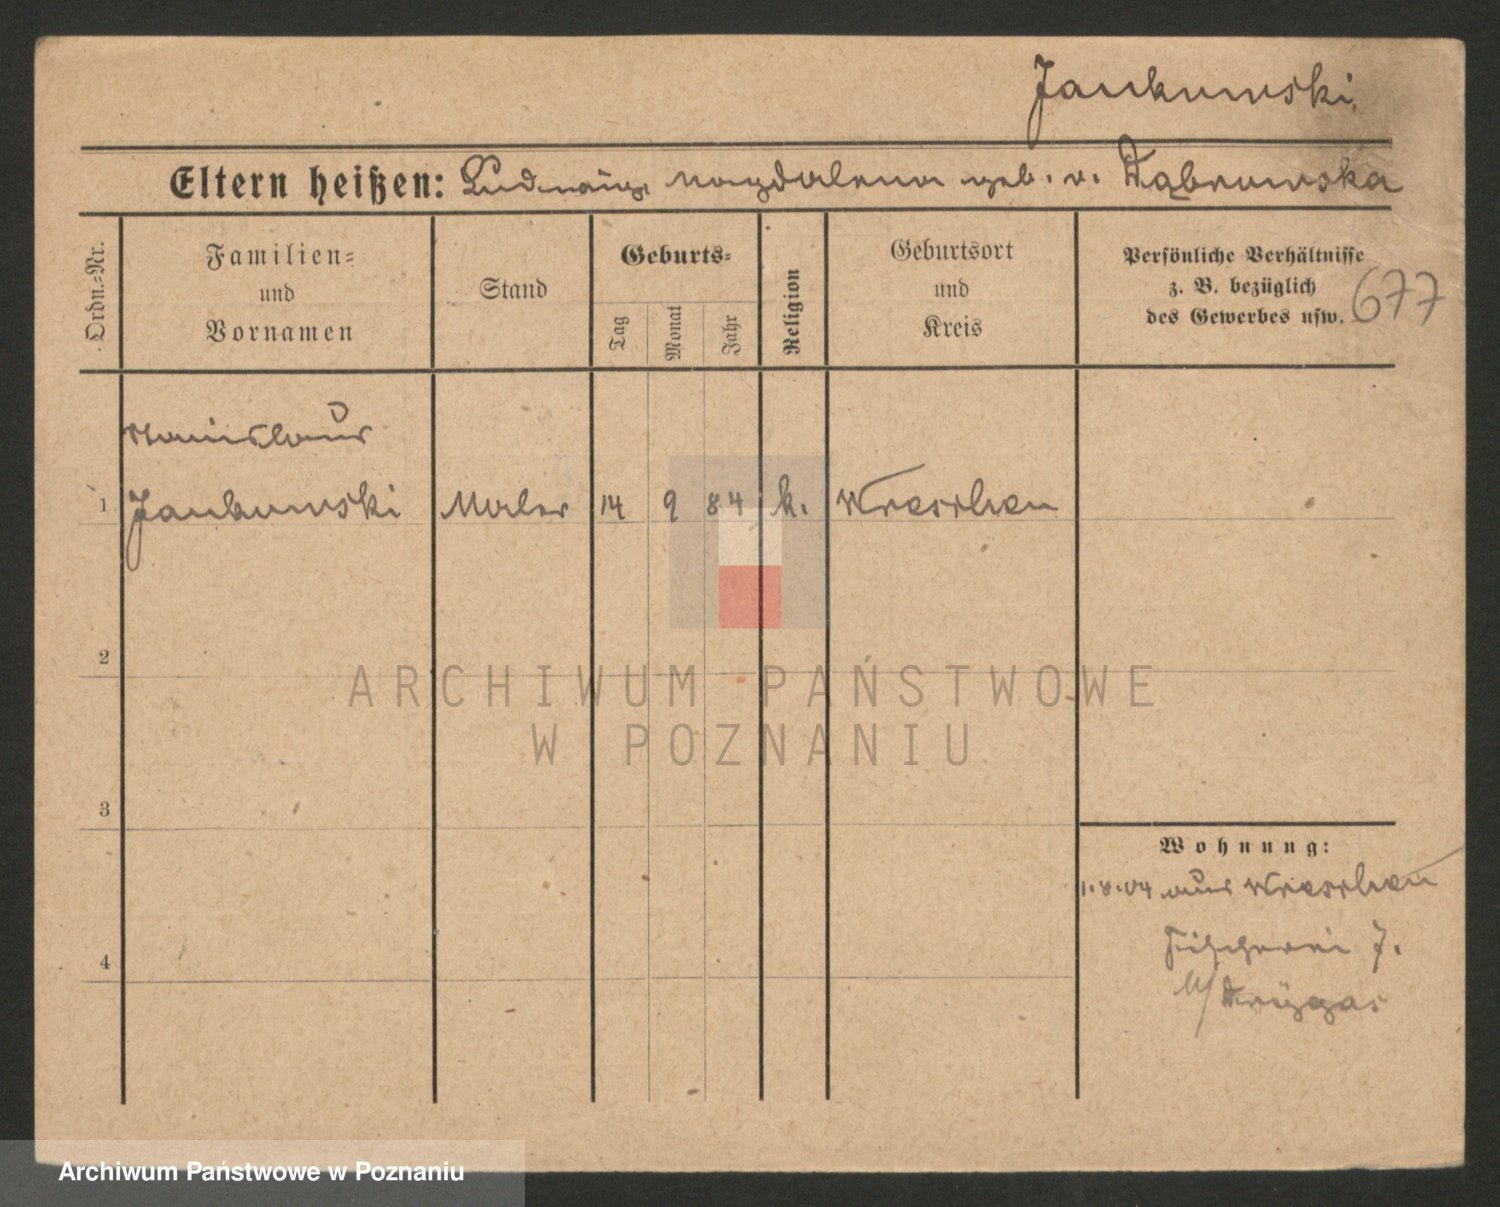 Jankowski
Eltern heißen: Ludwig, Magdalena geb. v. Dąbrowska
Ordn.-Nr.
Familien-
und
Vornamen
Stand
Geburts-
Tag
Monat
Jahr
Religion
Geburtsort
und
Kreis
Persönliche Verhältnisse
z. B. bezüglich
des Gewerbes usw.
677
Stanislaus
1 Jankowski Maler 14 9 84 k. Wreschen
2
ARCHIWUM PAŃSTWOWE
W POZNANIU
3
Wohnung:
1.8.04 aus Wreschen
Fischerei 7.
4
Archiwum Państwowe w Poznaniu